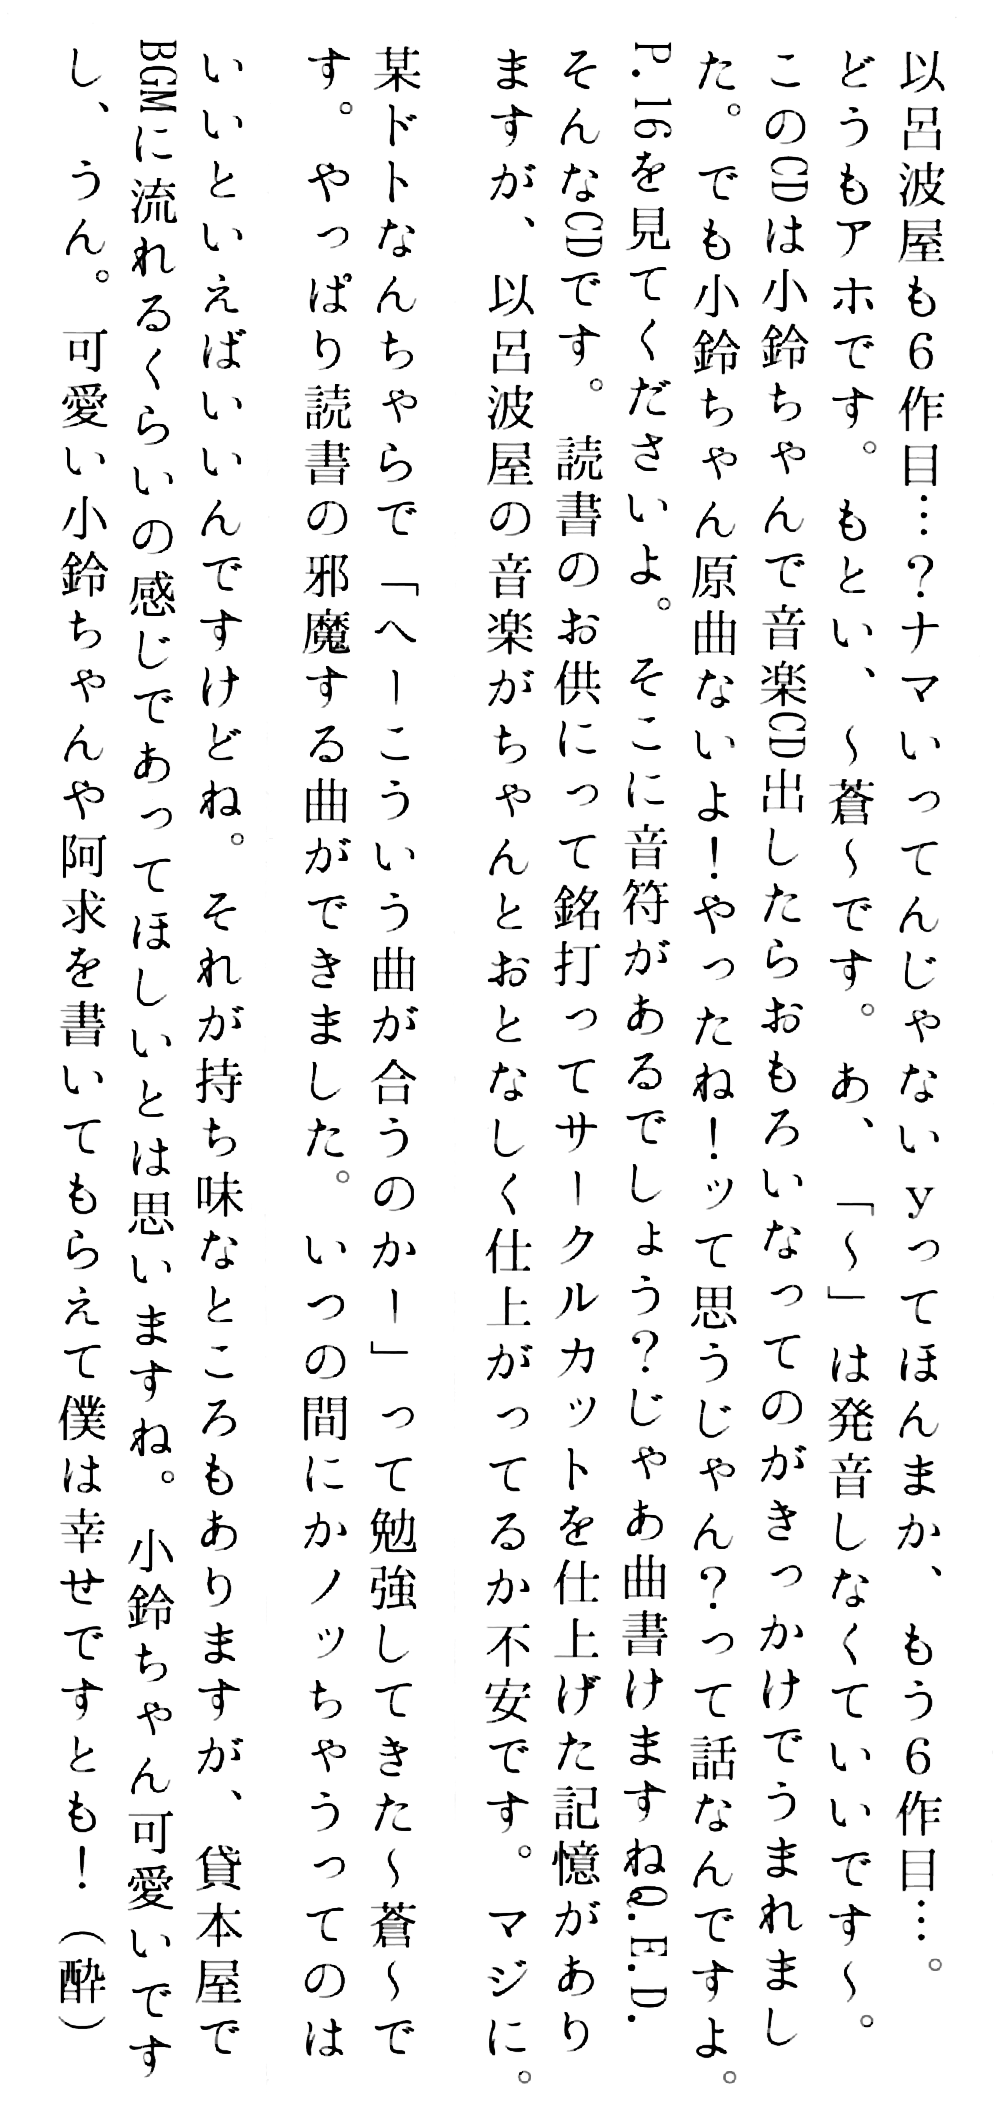 以呂波屋も６作目…？ナマいってんじゃないｙってほんまか、もう６作目…。
どうもアホです。もとい、～蒼～です。あ、「～」は発音しなくていいです～。
このCDは小鈴ちゃんで音楽CD出したらおもろいなってのがきっかけでうまれまし
た。でも小鈴ちゃん原曲ないよ！やったね！ッて思うじゃん？って話なんですよ。
P.16を見てくださいよ。そこに音符があるでしょう？じゃあ曲書けますねQ.E.D.
そんなCDです。読書のお供にって銘打ってサークルカットを仕上げた記憶があり
ますが、以呂波屋の音楽がちゃんとおとなしく仕上がってるか不安です。マジに。
某ドトなんちゃらで「へーこういう曲が合うのかー」って勉強してきた～蒼～で
す。やっぱり読書の邪魔する曲ができました。いつの間にかノッちゃうってのは
いいといえばいいんですけどね。それが持ち味なところもありますが、貸本屋で
BGMに流れるくらいの感じであってほしいとは思いますね。小鈴ちゃん可愛いです
し、うん。可愛い小鈴ちゃんや阿求を書いてもらえて僕は幸せですとも！（酔）